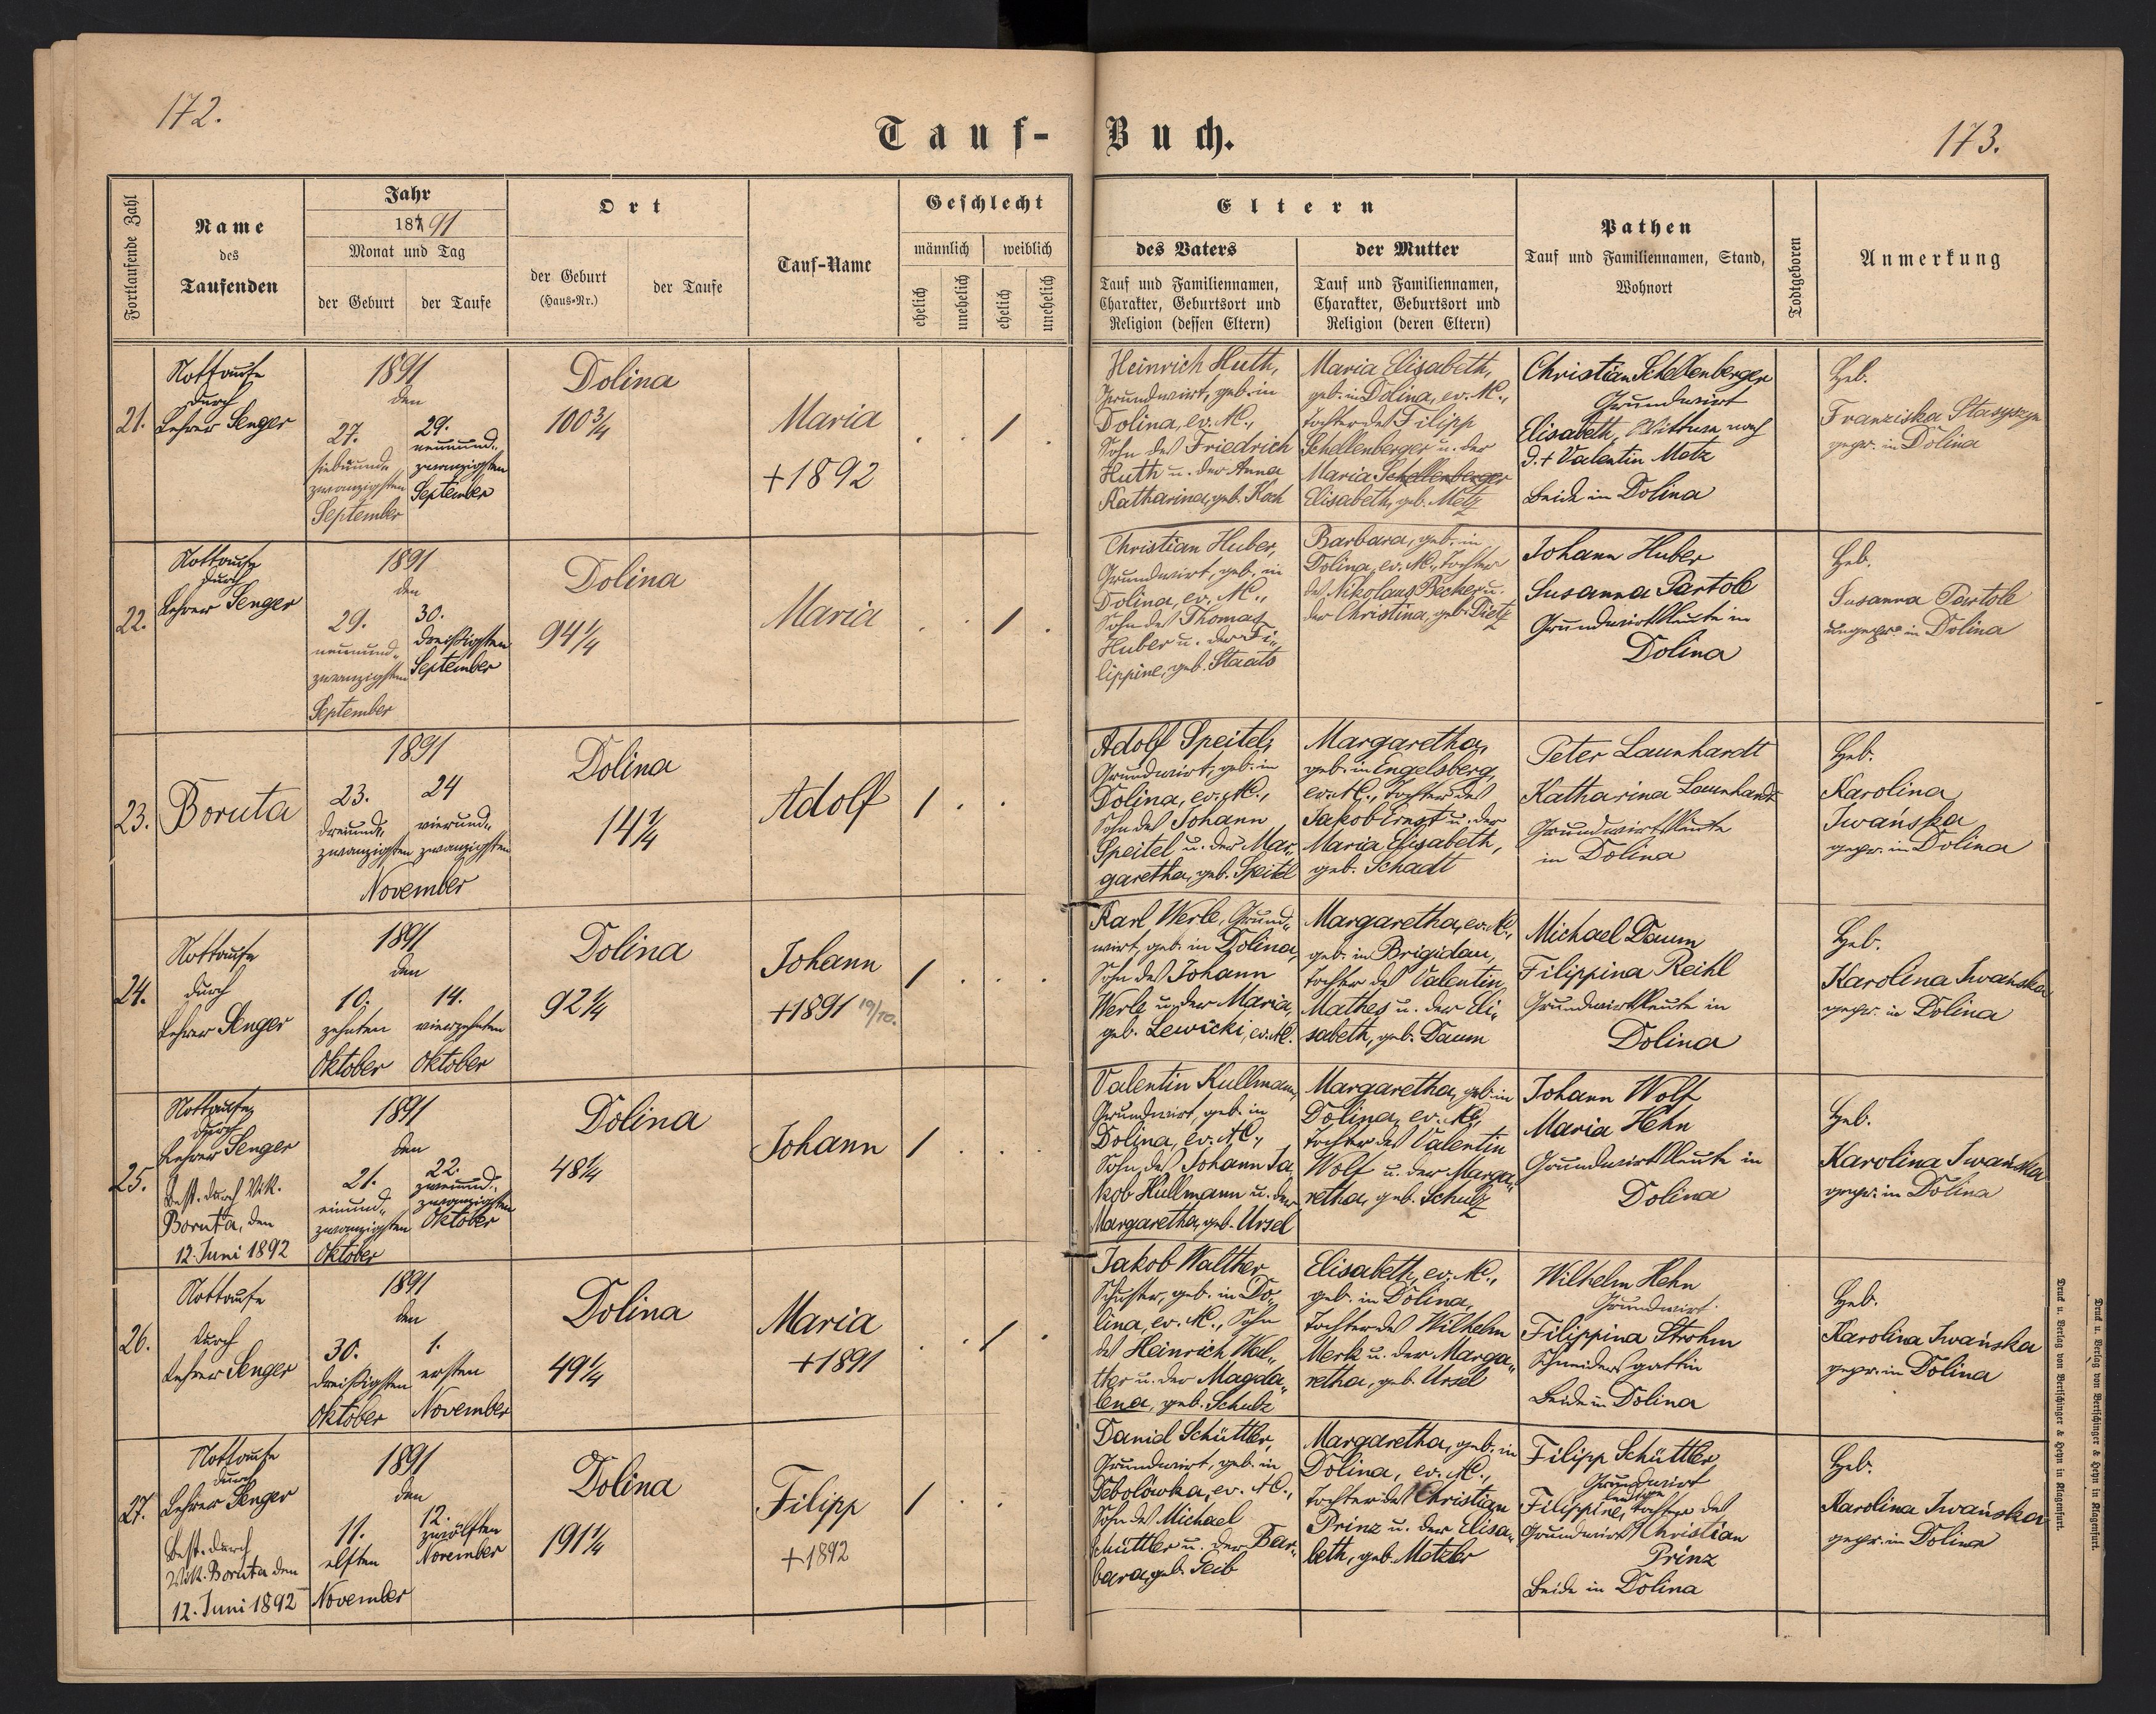 172.
Tauf-Buch.
173.
Fortlaufende Zahl
Name
des
Taufenden
Jahr
18791
Monat und Tag
der Geburt
der Taufe
Ort
der Geburt
(Haus-Nr.)
der Taufe
Tauf-Name
Geschlecht
männlich
weiblich
ehelich
unehelich
ehelich
unehelich
Eltern
des Vaters
Tauf und Familiennamen,
Charakter, Geburtsort und
Religion (dessen Eltern)
der Mutter
Tauf und Familiennamen,
Charakter, Geburtsort und
Religion (deren Eltern)
Pathen
Tauf und Familiennamen, Stand,
Wohnort
Todtgeboren
Anmerkung
21.
Nottaufe
durch
Lehrer Senger
1891
den
27.
siebenund-
zwanzigsten
September
29.
neunund-
zwanzigsten
September
Dolina
100 3/4
Maria
+1892
. . 1 .
Heinrich Huth,
Grundwirt, geb. in
Dolina, ev. AC.,
Sohn des Friedrich
Huth u. der Anna
Katharina, geb. Koch
Maria Elisabeth,
geb. in Dolina, ev. AC.,
Tochter des Filipp
Schellenberger u. der
Maria Schellenberger
Elisabeth, geb. Metz
Christian Schellenberger
Grundwirt
Elisabeth, Wittwe nach
d. + Valentin Metz
Beide in Dolina
Heb.
Franziska Stasyszyn
gepr. in Dolina
22.
Nottaufe
durch
Lehrer Senger
1891
den
29.
neunund-
zwanzigsten
September
30.
dreißigsten
September
Dolina
94 1/4
Maria
. . 1 .
Christian Huber,
Grundwirt, geb. in
Dolina, ev. AC.,
Sohn des Thomas
Huber u. der Fi-
lippine, geb. Staats
Barbara, geb. in
Dolina, ev. AC., Tochter
des Nikolaus Becker u.
der Christina, geb. Dietz
Johann Huber
Susanna Partole
Grundwirtsleute in
Dolina
Heb.
Susanna Partole
ungepr. in Dolina
23.
Boruta
1891
23.
dreiund-
zwanzigsten
24
vierund-
zwanzigsten
November
Dolina
14 1/4
Adolf
1 . .
Adolf Speitel,
Grundwirt, geb. in
Dolina, ev. AC.,
Sohn des Johann
Speitel u. der Mar-
garetha, geb. Speitel
Margaretha,
geb. in Engelsberg,
ev. AC., Tochter des
Jakob Ernst u. der
Maria Elisabeth,
geb. Schadt
Peter Launhardt
Katharina Launhardt
Grundwirtsleute
in Dolina
Heb.
Karolina
Iwańska
gepr. in Dolina
24.
Nottaufe
durch
Lehrer Senger
1891
den
10.
zehnten
Oktober
14.
vierzehnten
Oktober
Dolina
92 1/4
Johann
+1891 19/10.
1 . . .
Karl Werle, Grund-
wirt, geb. in Dolina,
Sohn des Johann
Werle u. der Maria,
geb. Lewicki, ev. AC.
Margaretha, ev. AC.,
geb. in Brigidau,
Tochter des Valentin
Mathes u. der Eli-
sabeth, geb. Daum
Michael Daum
Filippina Reihl
Grundwirtsleute in
Dolina
Heb.
Karolina Iwańska
gepr. in Dolina
25.
Nottaufe
durch
Lehrer Senger
Best. durch Vik.
Boruta, den
12. Juni 1892
1891
den
21.
einund-
zwanzigsten
Oktober
22.
zweiund-
zwanzigsten
Oktober
Dolina
48 1/4
Johann
1 . . .
Valentin Kullmann,
Grundwirt, geb. in
Dolina, ev. AC.,
Sohn des Johann Ja-
kob Kullmann u. der
Margaretha, geb. Ursel
Margaretha, geb. in
Dolina, ev. AC.,
Tochter des Valentin
Wolf u. der Marga-
retha, geb. Schulz
Johann Wolf
Maria Hehn
Grundwirtsleute in
Dolina
Heb.
Karolina Iwańska
gepr. in Dolina
26.
Nottaufe
durch
Lehrer Senger
1891
den
30.
dreißigsten
Oktober
1.
ersten
November
Dolina
49 1/4
Maria
+1891
. . 1 .
Jakob Walther,
Schuster, geb. in Do-
lina, ev. AC., Sohn
des Heinrich Wal-
ther u. der Magda-
lena, geb. Schulz
Elisabeth, ev. AC.,
geb. in Dolina,
Tochter des Wilhelm
Merk u. der Marga-
retha, geb. Ursel
Wilhelm Hehn
Grundwirt.
Filippina Strohm
Schneidersgattin
Beide in Dolina
Heb.
Karolina Iwańska
gepr. in Dolina
27.
Nottaufe
durch
Lehrer Senger
Best. durch
Vik. Boruta den
12. Juni 1892
1891
den
11.
elften
November
12.
zwölften
November
Dolina
191 1/4
Filipp
+1892
1 . .
Daniel Schüttler,
Grundwirt, geb. in
Debolówka, ev. AC.,
Sohn des Michael
Schüttler u. der Bar-
bara, geb. Seib
Margaretha, geb. in
Dolina, ev. AC.,
Tochter des Christian
Prinz u. der Elisa-
beth, geb. Metzler
Filipp Schüttler,
Grundwirt
Filippine, Tochter des
Grundwirts Christian
Prinz
Beide in Dolina
Heb.
Karolina Iwańska
gepr. in Dolina
Druck u. Verlag von Bertschinger & Heyn in Klagenfurt.
Druck u. Verlag von Bertschinger & Heyn in Klagenfurt.